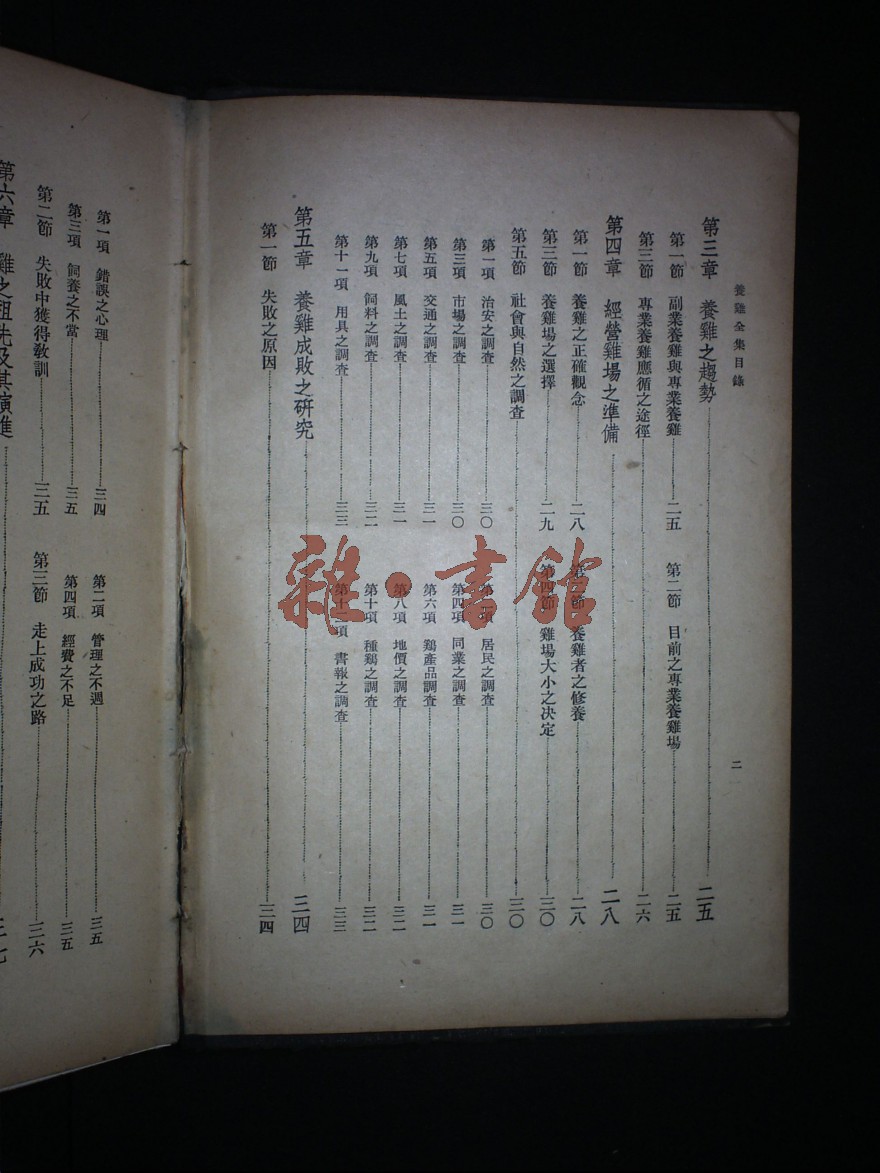 養雞全集目錄
二
第三章 養雞之趨勢……二五
第一節 副業養雞與專業養雞……二五 第二節 目前之專業養雞場……二五
第三節 專業養雞應循之途徑……二六
第四章 經營雞場之準備……二八
第一節 養雞之正確觀念……二八 第二節 養雞者之修養……二八
第三節 養雞場之選擇……二九 第四節 雞場大小之決定……三〇
第五節 社會與自然之調查……三〇
第一項 治安之調查……三〇 第二項 居民之調查……三〇
第三項 市場之調查……三〇 第四項 同業之調查……三一
第五項 交通之調查……三一 第六項 鷄產品調查……三一
第七項 風土之調查……三一 第八項 地價之調查……三二
第九項 飼料之調查……三二 第十項 種鷄之調查……三二
第十一項 用具之調查……三三 第十二項 書報之調查……三三
第五章 養雞成敗之研究……三四
第一節 失敗之原因……三四
第一項 錯誤之心理……三四 第二項 管理之不週……三五
第三項 飼養之不當……三五 第四項 經費之不足……三五
第二節 失敗中獲得教訓……三五 第三節 走上成功之路……三六
第六章 雞之祖先及其演進……三七
雜·書館